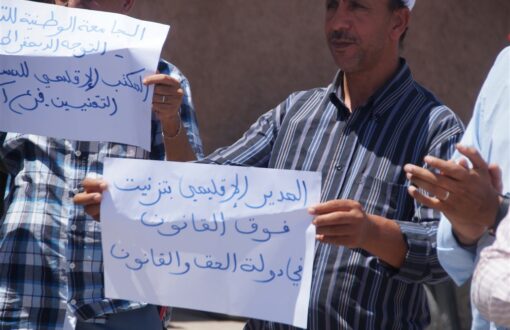 الجامعة الوطنية للت
التوجه الديمقراطي
المكتب الإقليمي للمس
التقنيين
المدير الإقليمي بتزنيت
فوق القانون
في دولة الحق والقانون